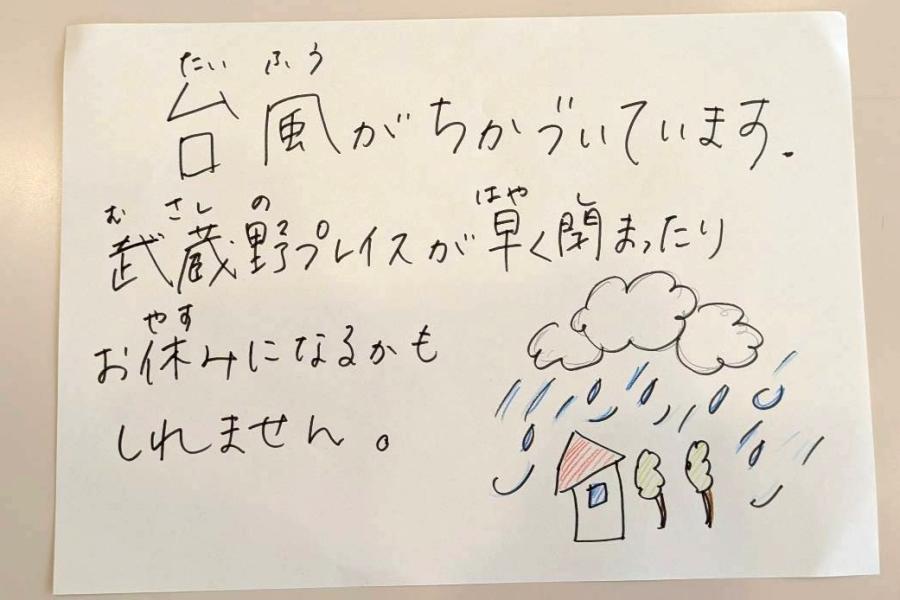 たい ふう
台風がちかづいています.
むさしの はや し
武蔵野プレイスが早く閉まったり
やす
お休みになるかも
しれません。